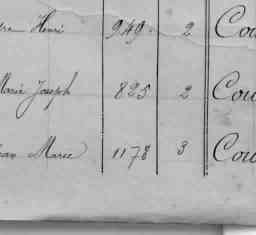 Henri 949 2 Cou
Marie Joseph 825 2 Cou
Jean Marie 1178 3 Cou